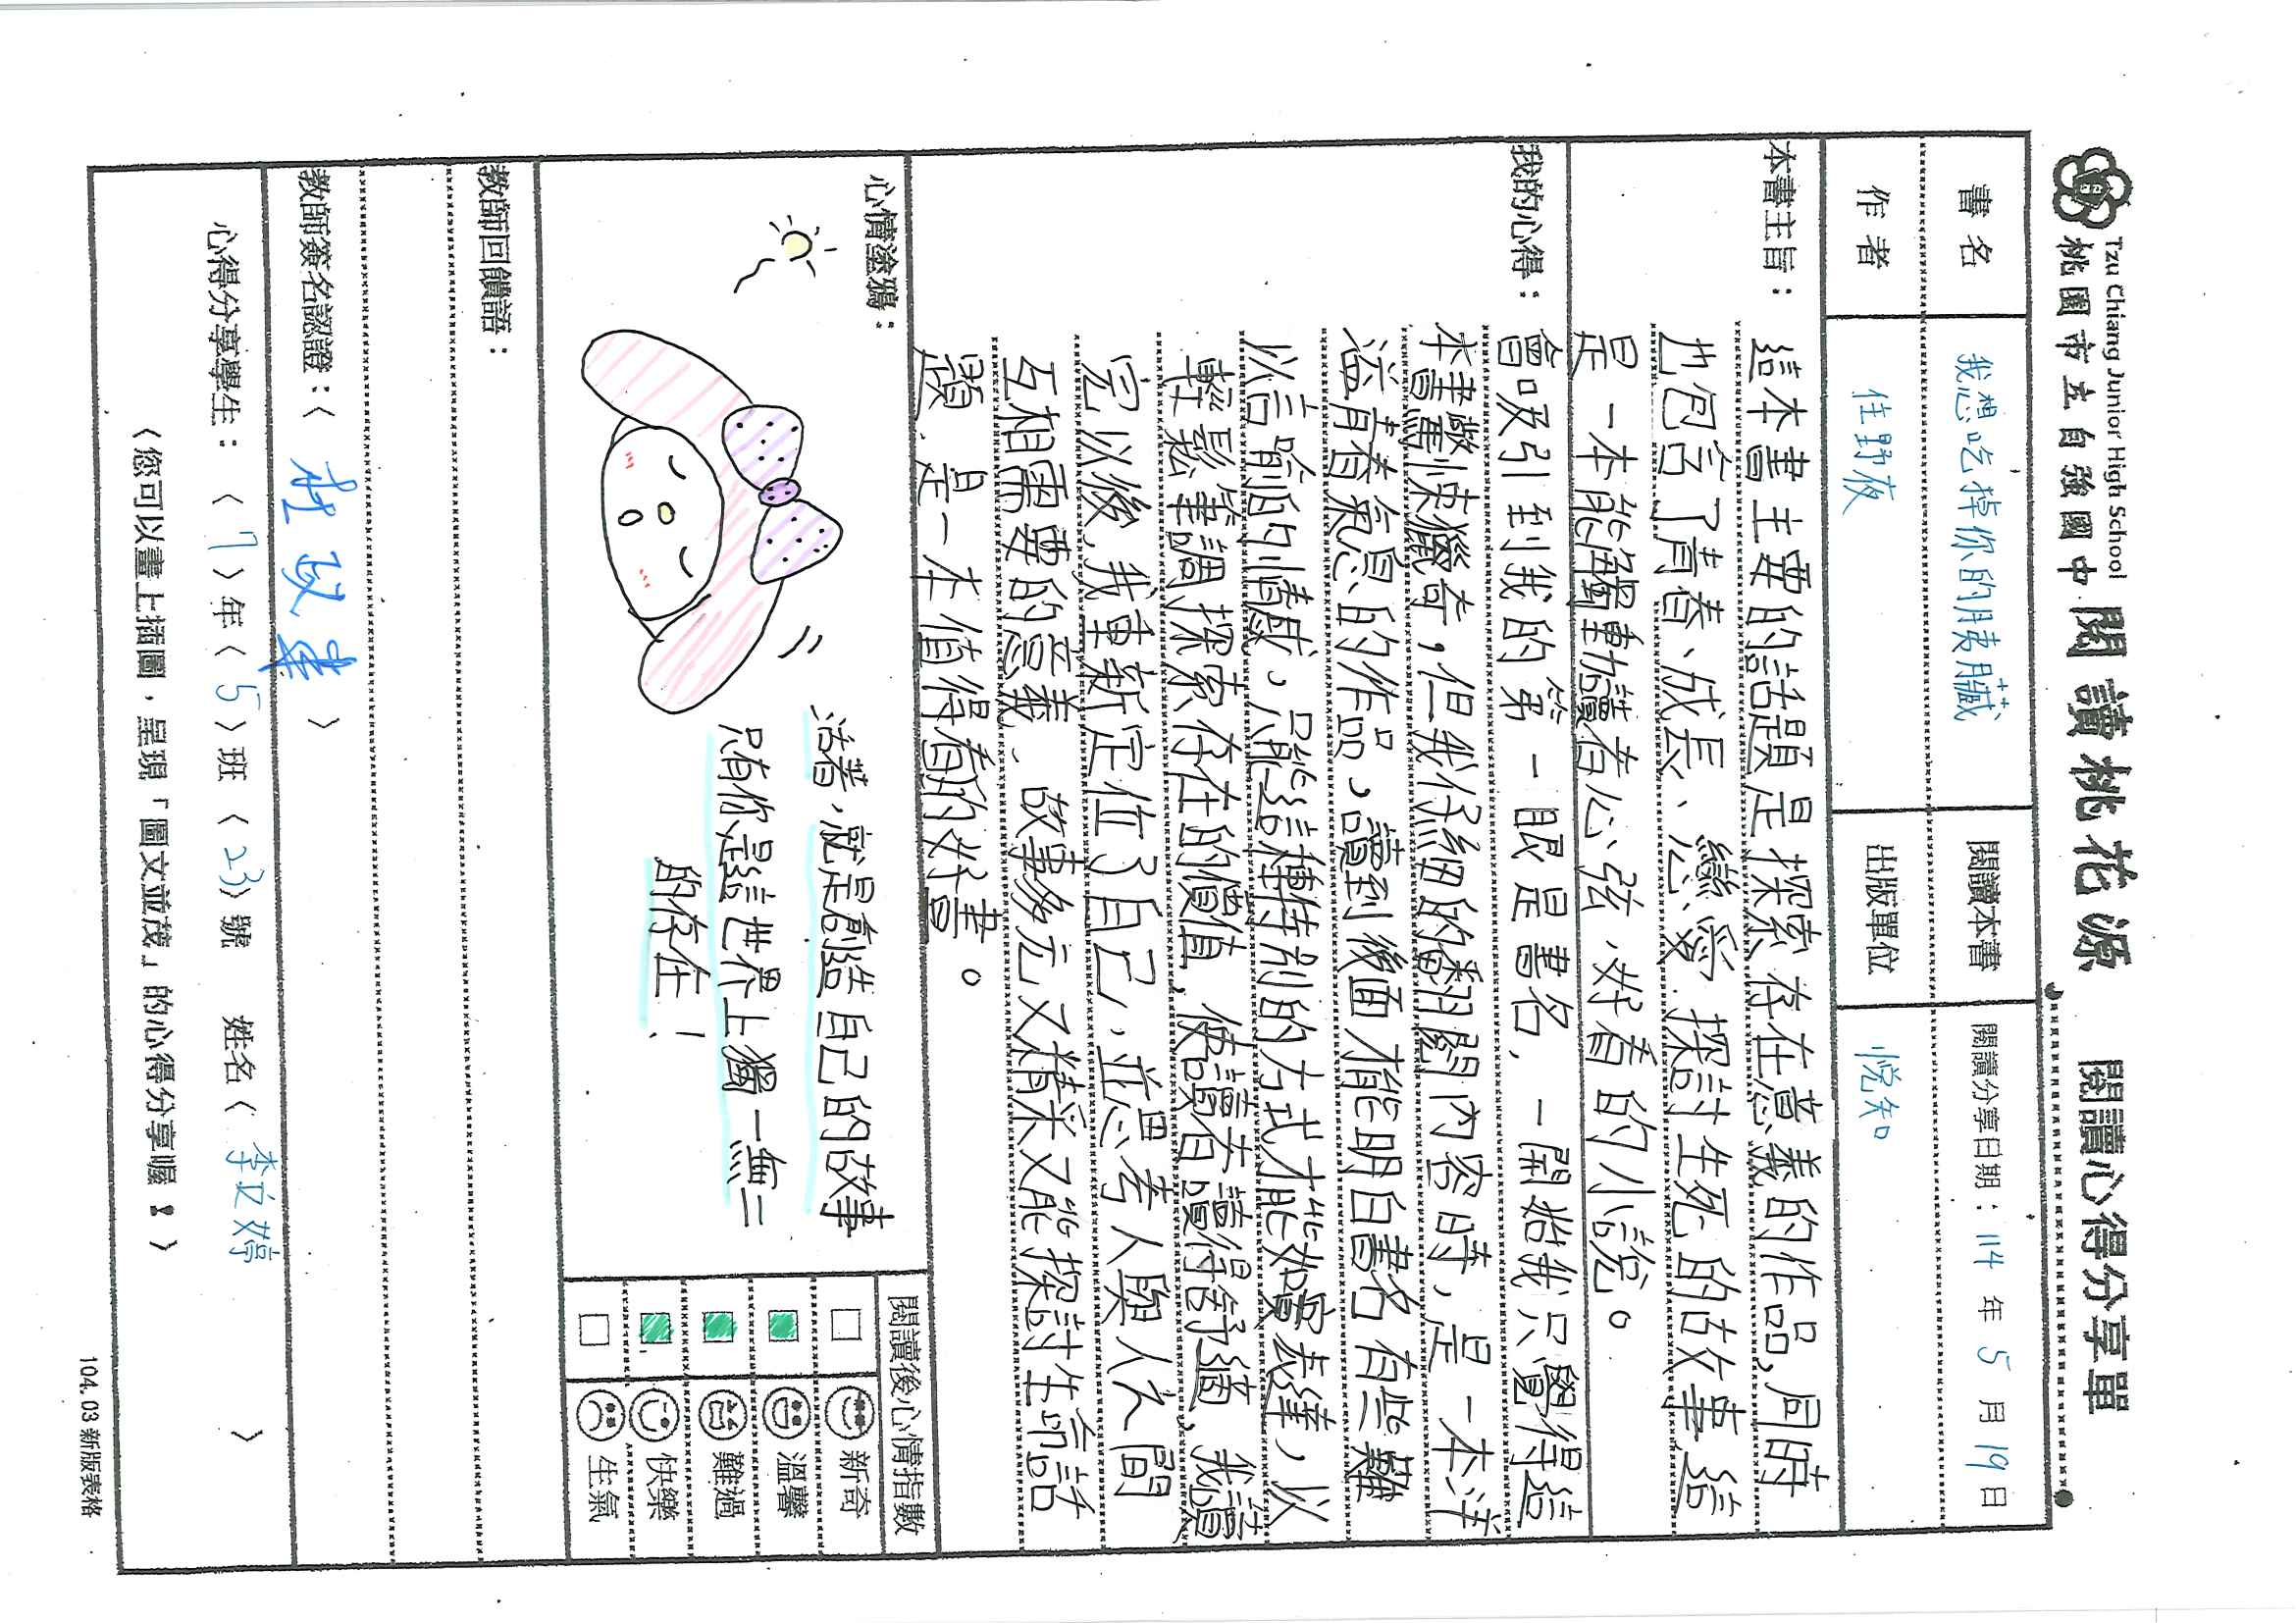 Tzu Chiang Junior High School
桃園市立自強國中 閱讀桃花源 閱讀心得分享單
書名 我想吃掉你的胰臟 閱讀本書 閱讀分享日期：114年5月19日
作者 住野夜 出版單位 悅知
本書主旨：
這本書主要的話題是探索存在意義的作品，同時
也包含了青春、成長、戀愛、探討生死的故事，這
是一本能觸動讀者心弦、好看的小說。
我的心得：
會吸引到我的第一眼是書名，一開始我只覺得這
本書驚悚獵奇，但我仔細的翻閱內容時，是一本洋
溢青春氣息的作品，讀到後面才能明白書名有些難
以言喻的情感，只能這種特別的方式才能如實表達，以
輕鬆筆調探索存在的價值，使讀者讀得舒適，我讀
完以後，我重新定位了自己，並思考人與人之間
互相需要的意義，故事多元又精采又能探討生命話
題，是一本值得看的好書。
心情塗鴉：
活著，就是創造自己的故事
只有你是這世界上獨一無二
的存在！
閱讀後心情指數
新奇
溫馨
難過
快樂
生氣
教師回饋語：
教師簽名認證：〈 〉
心得分享學生：〈7〉年〈5〉班〈23〉號 姓名〈李立婷〉
〈您可以畫上插圖，呈現「圖文並茂」的心得分享喔！〉
104.03新版表格